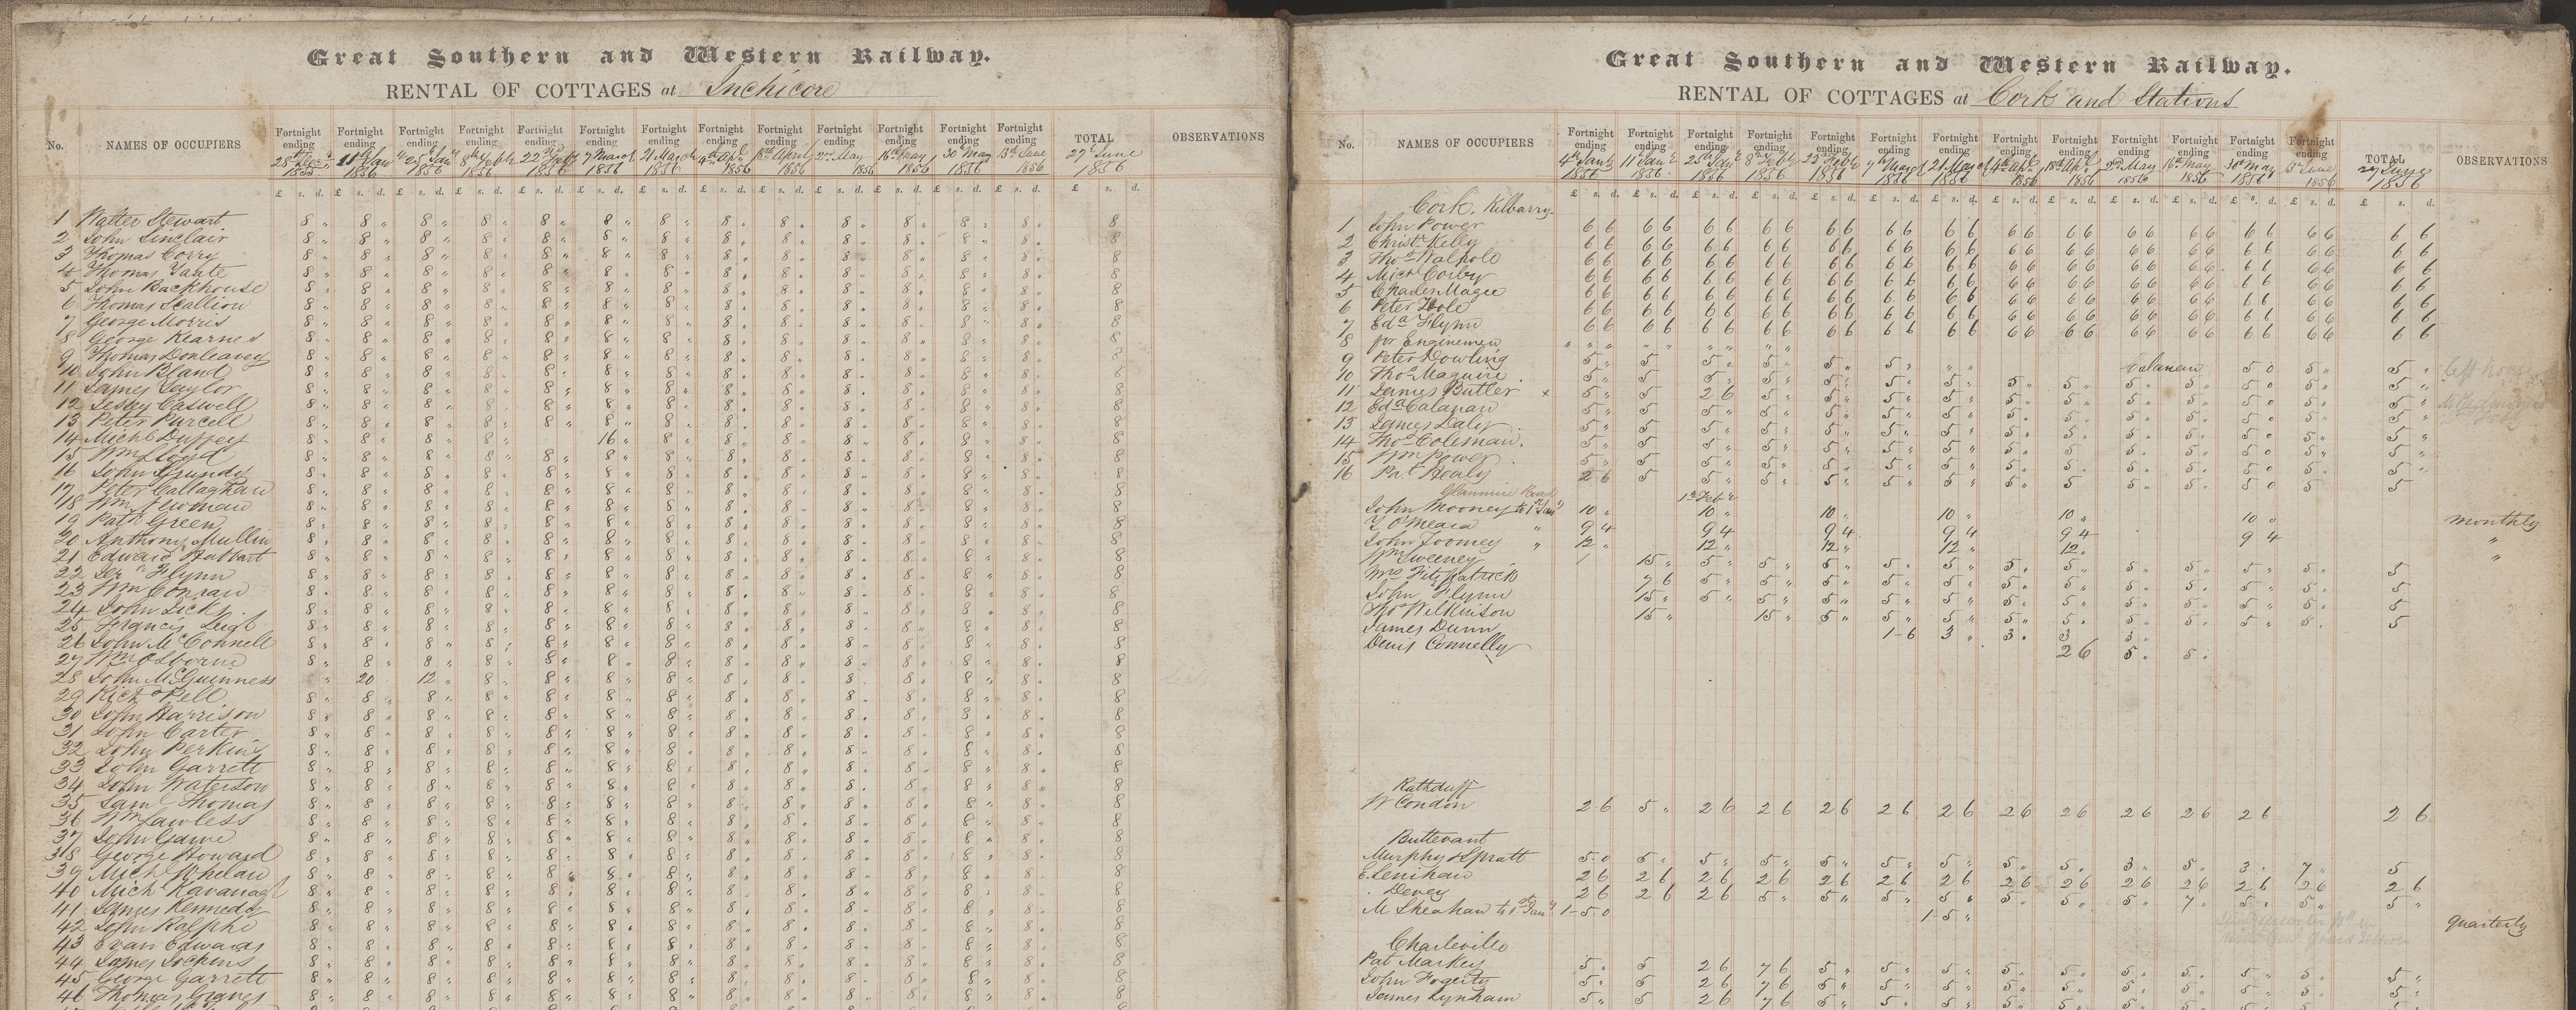 Great Southern and Western Railway.
RENTAL OF COTTAGES at Inchicore
No. NAMES OF OCCUPIERS Fortnight ending Fortnight ending Fortnight ending Fortnight ending Fortnight ending Fortnight ending Fortnight ending Fortnight ending Fortnight ending Fortnight ending Fortnight ending Fortnight ending Fortnight ending TOTAL OBSERVATIONS
28th Decr 1855 11th Jan 1856 25 Jany 1856 8th Feb 1856 22nd Feby 1856 7 March 1856 21 March 1856 4th Apl 1856 18th April 1856 2nd May 1856 16th May 1856 30th May 1856 13th June 1856 27th June 1856
£ s. d. £ s. d. £ s. d. £ s. d. £ s. d. £ s. d. £ s. d. £ s. d. £ s. d. £ s. d. £ s. d. £ s. d. £ s. d. £ s. d.
1 Walter Stewart 8 8 8 8 8 8 8 8 8 8 8 8 8 8
2 John Sinclair 8 8 8 8 8 8 8 8 8 8 8 8 8 8
3 Thomas Corry 8 8 8 8 8 8 8 8 8 8 8 8 8 8
4 Thomas 8 8 8 8 8 8 8 8 8 8 8 8 8 8
5 John Backhouse 8 8 8 8 8 8 8 8 8 8 8 8 8 8
6 Thomas Scallion 8 8 8 8 8 8 8 8 8 8 8 8 8 8
7 George Morris 8 8 8 8 8 8 8 8 8 8 8 8 8 8
8 George Kearnes 8 8 8 8 8 8 8 8 8 8 8 8 8 8
9 Thomas Donleavey 8 8 8 8 8 8 8 8 8 8 8 8 8 8
10 John Bland 8 8 8 8 8 8 8 8 8 8 8 8 8 8
11 James Taylor 8 8 8 8 8 8 8 8 8 8 8 8 8 8
12 Caswell 8 8 8 8 8 8 8 8 8 8 8 8 8 8
13 Peter Purcell 8 8 8 8 8 8 8 8 8 8 8 8 8 8
14 Michl Duffey 8 8 8 8 16 8 8 8 8 8 8 8 8
15 Wm Lloyd 8 8 8 8 8 8 8 8 8 8 8 8 8 8
16 John Grundy 8 8 8 8 8 8 8 8 8 8 8 8 8 8
17 Peter Callaghan 8 8 8 8 8 8 8 8 8 8 8 8 8 8
18 Wm Newman 8 8 8 8 8 8 8 8 8 8 8 8 8 8
19 Patk Green 8 8 8 8 8 8 8 8 8 8 8 8 8 8
20 Anthony Mullin 8 8 8 8 8 8 8 8 8 8 8 8 8 8
21 Edward 8 8 8 8 8 8 8 8 8 8 8 8 8 8
22 Flynn 8 8 8 8 8 8 8 8 8 8 8 8 8 8
23 Wm Conran 8 8 8 8 8 8 8 8 8 8 8 8 8 8
24 John Dicks 8 8 8 8 8 8 8 8 8 8 8 8 8 8
25 Francis Leigh 8 8 8 8 8 8 8 8 8 8 8 8 8 8
26 John McConnell 8 8 8 8 8 8 8 8 8 8 8 8 8 8
27 Wm Osborne 8 8 8 8 8 8 8 8 8 8 8 8 8 8
28 John McGuinness " 20 12 8 8 8 8 8 8 8 8 8 8 8
29 Richd Pell 8 8 8 8 8 8 8 8 8 8 8 8 8 8
30 John Harrison 8 8 8 8 8 8 8 8 8 8 8 8 8 8
31 John Carter 8 8 8 8 8 8 8 8 8 8 8 8 8 8
32 John Perkins 8 8 8 8 8 8 8 8 8 8 8 8 8 8
33 John Garrett 8 8 8 8 8 8 8 8 8 8 8 8 8 8
34 John Waterson 8 8 8 8 8 8 8 8 8 8 8 8 8 8
35 Saml Thomas 8 8 8 8 8 8 8 8 8 8 8 8 8 8
36 Wm Lawless 8 8 8 8 8 8 8 8 8 8 8 8 8 8
37 John Gawne 8 8 8 8 8 8 8 8 8 8 8 8 8 8
38 George Howard 8 8 8 8 8 8 8 8 8 8 8 8 8 8
39 Michl Whelan 8 8 8 8 8 8 8 8 8 8 8 8 8 8
40 Michl Kavanagh 8 8 8 8 8 8 8 8 8 8 8 8 8 8
41 James Kennedy 8 8 8 8 8 8 8 8 8 8 8 8 8 8
42 John Ralphe 8 8 8 8 8 8 8 8 8 8 8 8 8 8
43 Evan Edwards 8 8 8 8 8 8 8 8 8 8 8 8 8 8
44 James Jockins 8 8 8 8 8 8 8 8 8 8 8 8 8 8
45 George Garrett 8 8 8 8 8 8 8 8 8 8 8 8 8 8
46 Thomas Graves 8 8 8 8 8 8 8 8 8 8 8 8 8 8
Great Southern and Western Railway.
RENTAL OF COTTAGES at Cork and Stations
No. NAMES OF OCCUPIERS Fortnight ending Fortnight ending Fortnight ending Fortnight ending Fortnight ending Fortnight ending Fortnight ending Fortnight ending Fortnight ending Fortnight ending Fortnight ending Fortnight ending Fortnight ending TOTAL OBSERVATIONS
4th Jany 1856 11th Jany 1856 25th Jany 1856 8th Feb 1856 22nd Feb 1856 7th March 1856 21 March 1856 4th Apl 1856 18th Apl 1856 2nd May 1856 16th May 1856 30th May 1856 13th June 1856 27 June 1856
£ s. d. £ s. d. £ s. d. £ s. d. £ s. d. £ s. d. £ s. d. £ s. d. £ s. d. £ s. d. £ s. d. £ s. d. £ s. d. £ s. d.
Cork. Kilbarry.
1 John Power 6 6 6 6 6 6 6 6 6 6 6 6 6 6 6 6 6 6 6 6 6 6 6 6 6 6 6 6
2 Christ Kelly 6 6 6 6 6 6 6 6 6 6 6 6 6 6 6 6 6 6 6 6 6 6 6 6 6 6 6 6
3 Thos Walpole 6 6 6 6 6 6 6 6 6 6 6 6 6 6 6 6 6 6 6 6 6 6 6 6 6 6 6 6
4 Michl Corby 6 6 6 6 6 6 6 6 6 6 6 6 6 6 6 6 6 6 6 6 6 6 6 6 6 6 6 6
5 Charles Magee 6 6 6 6 6 6 6 6 6 6 6 6 6 6 6 6 6 6 6 6 6 6 6 6 6 6 6 6
6 Peter Hole 6 6 6 6 6 6 6 6 6 6 6 6 6 6 6 6 6 6 6 6 6 6 6 6 6 6 6 6
7 Edd Flynn 6 6 6 6 6 6 6 6 6 6 6 6 6 6 6 6 6 6 6 6 6 6 6 6 6 6 6 6
8 for Enginemen " " " " " " " " "
9 Peter Dowling 5 5 5 5 5 5 " " Calanan 5 0 5 5 left house
10 Thos Maguire 5 5 5 5 5 5 5 5 5 5 5 5 0 5 5
11 James Butler x 5 5 2 6 5 5 5 5 5 5 5 5 5 0 5 5
12 Edd Calanan 5 5 5 5 5 5 5 5 5 5 5 5 0 5 5
13 James Daly 5 5 5 5 5 5 5 5 5 5 5 5 0 5 5
14 Thos Coleman 5 5 5 5 5 5 5 5 5 5 5 5 0 5 5
15 Wm Power 5 5 5 5 5 5 5 5 5 5 5 5 0 5 5
16 Pat Healy 2 6 5 5 5 5 5 5 5 5 5 5 5 0 5 5
Glanmire Road 1st Feby
John Mooney to 1st Jany 10 10 10 10 10 10 monthly
T O'Meara " 9 4 9 4 9 4 9 4 9 4 9 4 "
John Toomey " 12 12 12 12 12 "
Wm Sweeney 15 5 5 5 5 5 5 5 5 5 5 5 5
Mrs Fitzpatrick 7 6 5 5 5 5 5 5 5 5 5 5 5 5
John Flynn 15 5 5 5 5 5 5 5 5 5 5 5 5
Thos Wilkinson 15 15 5 5 5 5 5 5 5 5 5 5
James Dunn 1-6 3 3 3 3
Denis Connelly 2 6 5 5
Rathduff
W Condon 2 6 5 2 6 2 6 2 6 2 6 2 6 2 6 2 6 2 6 2 6 2 6 2 6
Buttevant
Murphy & Spratt 5.0 5 5 5 5 5 5 5 5 3 5 3 7 5
E Lenihan 2 6 2 6 2 6 2 6 2 6 2 6 2 6 2 6 2 6 2 6 2 6 2 6 2 6 2 6
Devey 2 6 2 6 2 6 5 5 5 5 5 5 5 7 5 5 5
M Sheahan to 1st Jany 1-5.0 1-5 quarterly
Charleville
Pat Markey 5 5 2 6 7 6 5 5 5 5 5 5 5 5 5 5
John Fogerty 5 5 2 6 7 6 5 5 5 5 5 5 5 5 5 5
James Lynham 5 5 2 6 7 6 5 5 5 5 5 5 5 5 5 5